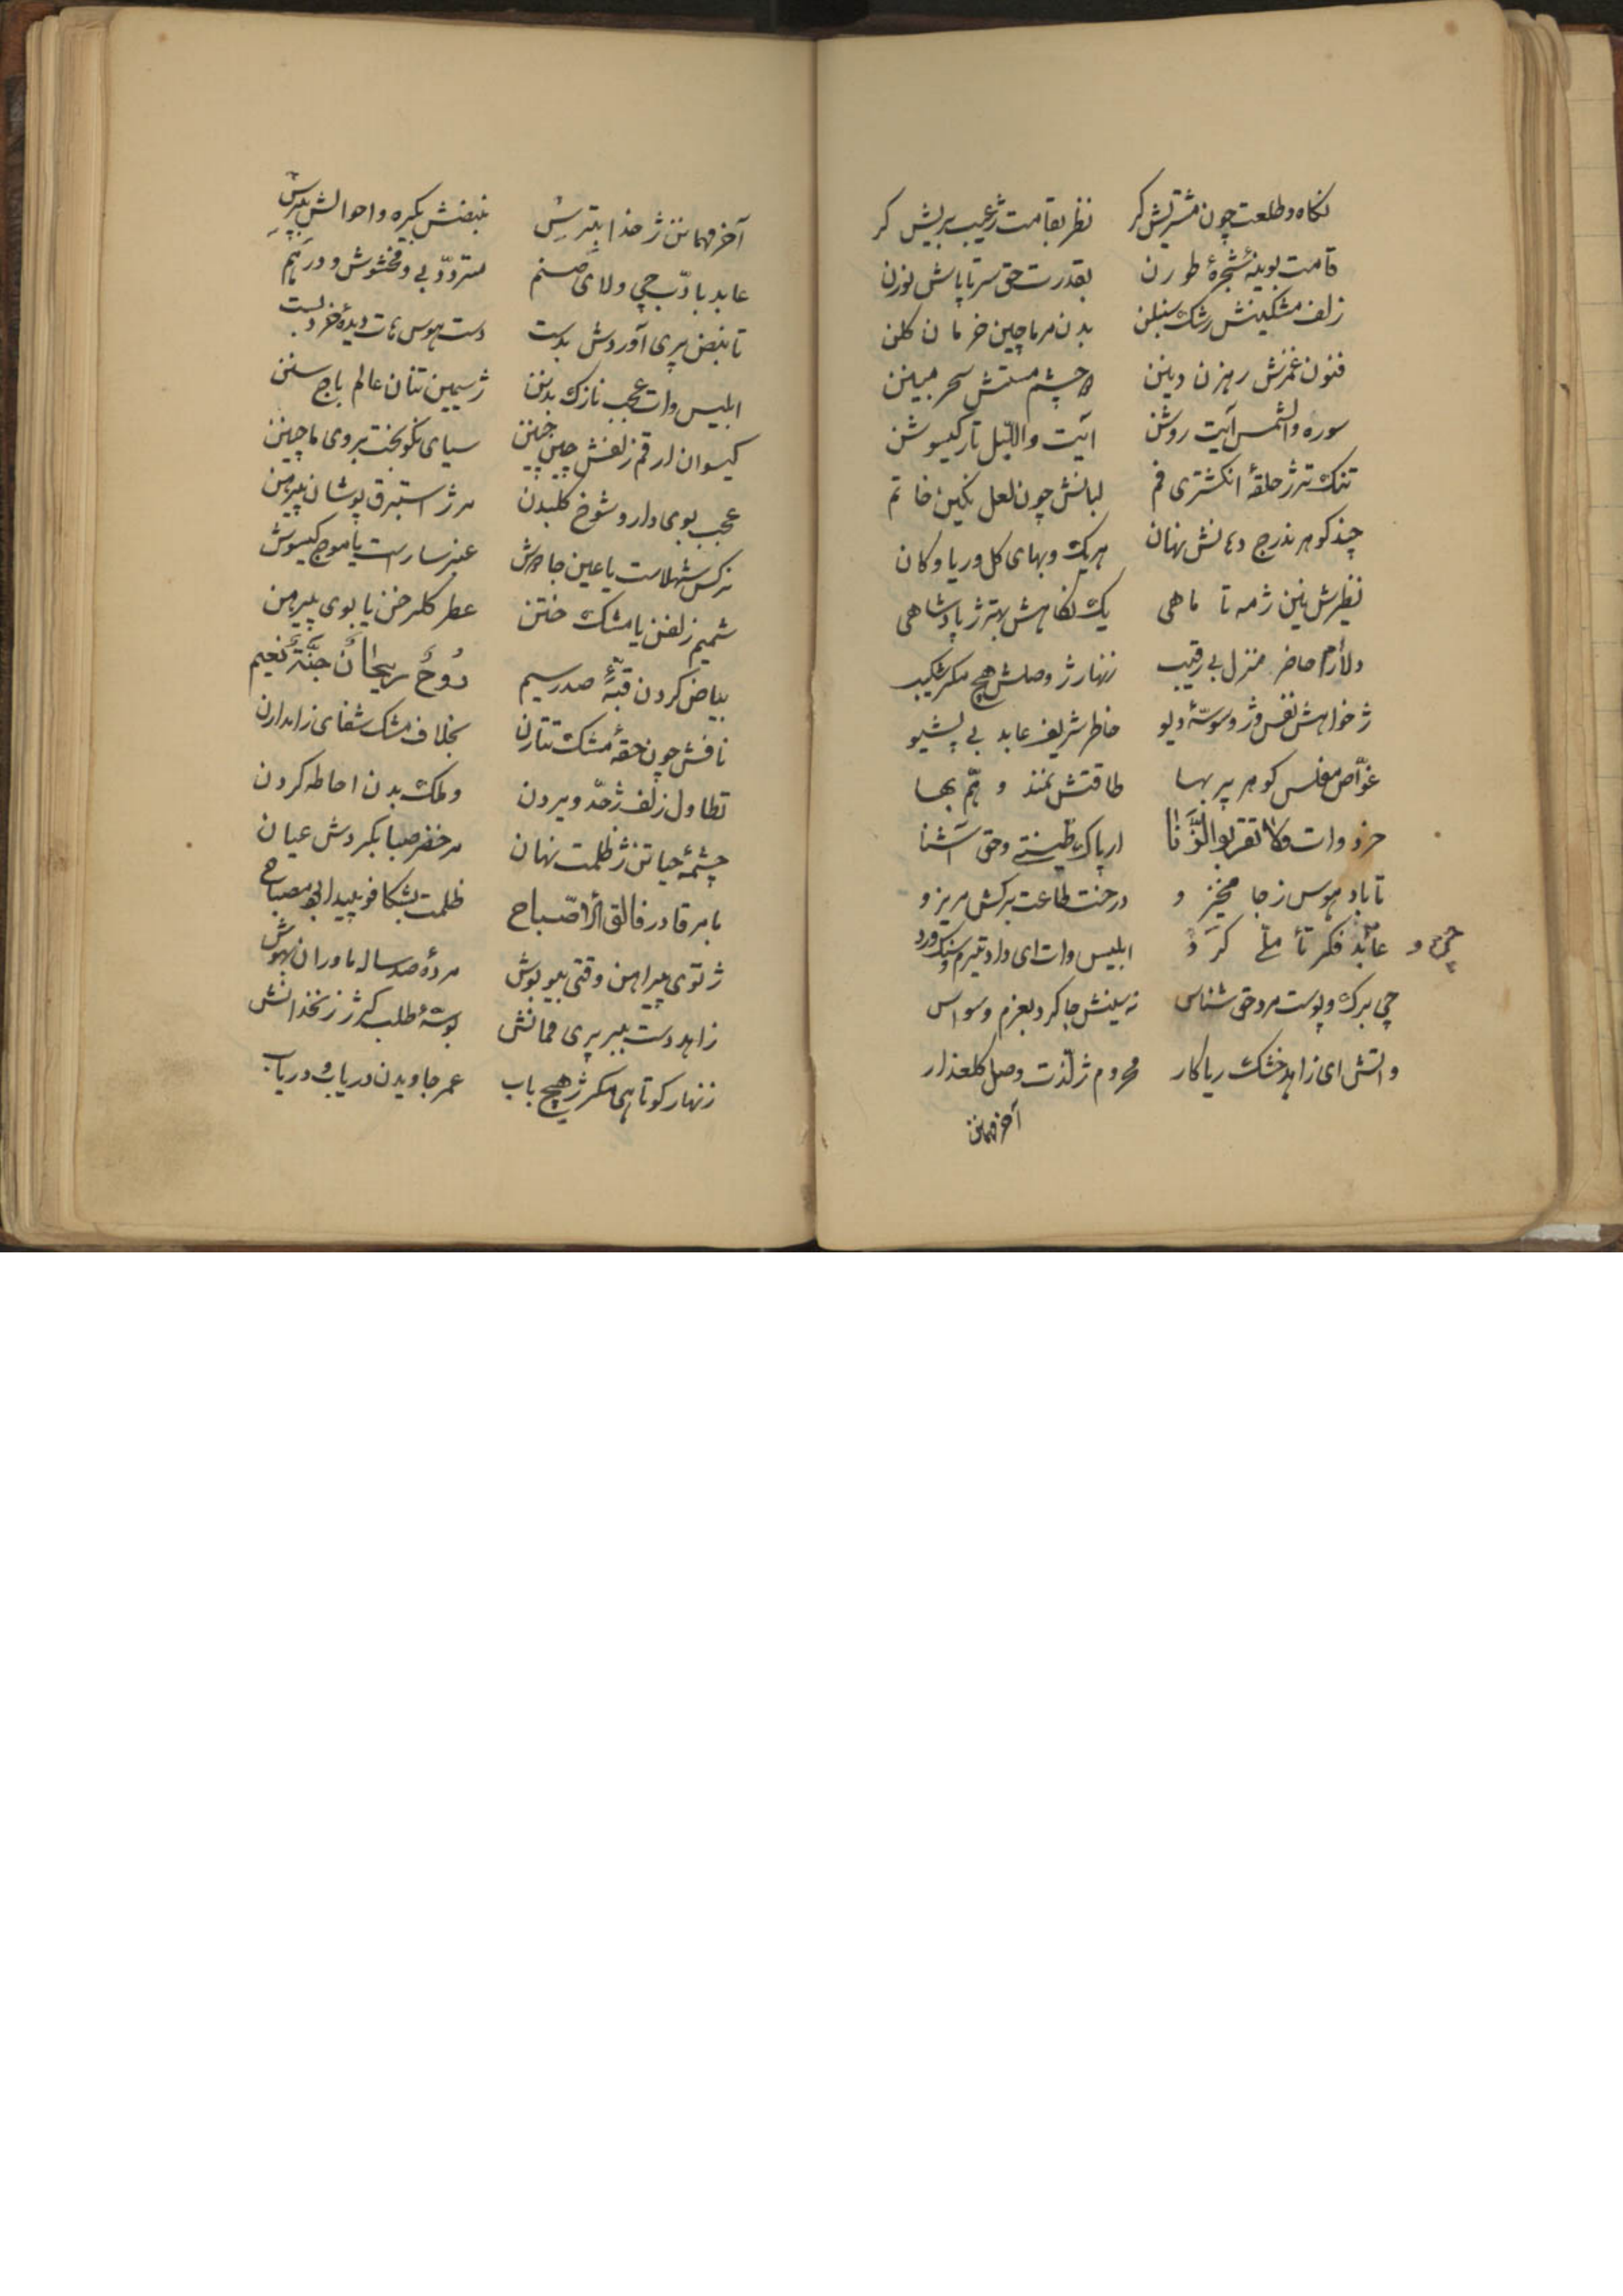 نکاه و طلعت چون مشتریش کر نظر بقامت ژ عیب بریش کر
قامت بوینهٔ شجرهٔ طورن بقدرت حق سرتاپاش نورن
زلف مشکینش رشک سنبلن بدن مر ماچین خرمان کلن
فنون غمزش رهزن دینن چشم مستش سحر مبینن
سوره والشمس آیت روشن آیت واللیل تار کیسوشن
تنک تر ژ حلقهٔ انکشتری فم لبانش چون لعل نکین خاتم
چند کوهر ندرج دهانش نهان هریک و بهای کل دریا و کان
نظرش نین ژ مه تا ماهی یک نکاهش بهتر ژ پادشاهی
دلارام حاضر منزل بی رقیب زنهار ژ وصلش هیچ مکر شکیب
ژ خواهش نفس و ژ وسوسهٔ دیو خاطر شریف عابد بی پشیو
غواص مفلس کوهر پر بها طاقتش نمند و هم بها
خرد وات ولا تقربوا الزنا ار پاک طینتی و حق آشنا
تا باد هوس ز جا مخیزو درخت طاعت برکش مریزو
عابد فکر تأملی کرد ابلیس وات ای داد تیرم و سنک ورد
چی برک و پوست مرد حق شناس نه سینش جا کرد بعزم وسواس
واتش ای زاهد خشک ریاکار محروم ژ لذت وصل کلعذار
آخر مهمانن
آخر مهمانن ژ خدا بترس نبضش بکیره و احوالش بپرس
عابد با ادب چی ولای صنم متردد بی و مخشوش و درهم
تا نبض پری آوردش بدست دست هوس هات دیدهٔ خرد بست
ابلیس وات عجب نازک بدنن ژ سیمین تنان عالم باج سنن
کیسوان ار قم زلفش چین چینن سیای نکوبخت بروی ماچینن
عجب بوی دارو شوخ کلبدن مر ژ استبرق پوشان پیرهن
نرکس شهلاست یا عین جادوش عنبر ساراست یا موج کیسوش
شمیم زلفن یا مشک ختن عطر کلرخن یا بوی پیرهن
بیاض کردن قبهٔ صدر سیم روح ریحان جنة نعیم
نافش چون حقهٔ مشک تتارن بخلاف مشک شفای زامدارن
تطاول زلف ژ حد ویردن و ملک بدن احاطه کردن
چشمهٔ حیاتن ژ ظلمت نهان مر خضر صبا بکردش عیان
یا مر قادر فالق الاصباح ظلمت بشکافو پیدا بو مصباح
ژ توی پیراهن وقتی بیو بوش مردهٔ صد ساله ماوران بهوش
زاهد دست ببر پری مهمانش بوسهٔ طلب کر ژ زنخدانش
زنهار کوتاهی مکر ژ هیچ باب عمر جاویدن دریاب و دریاب